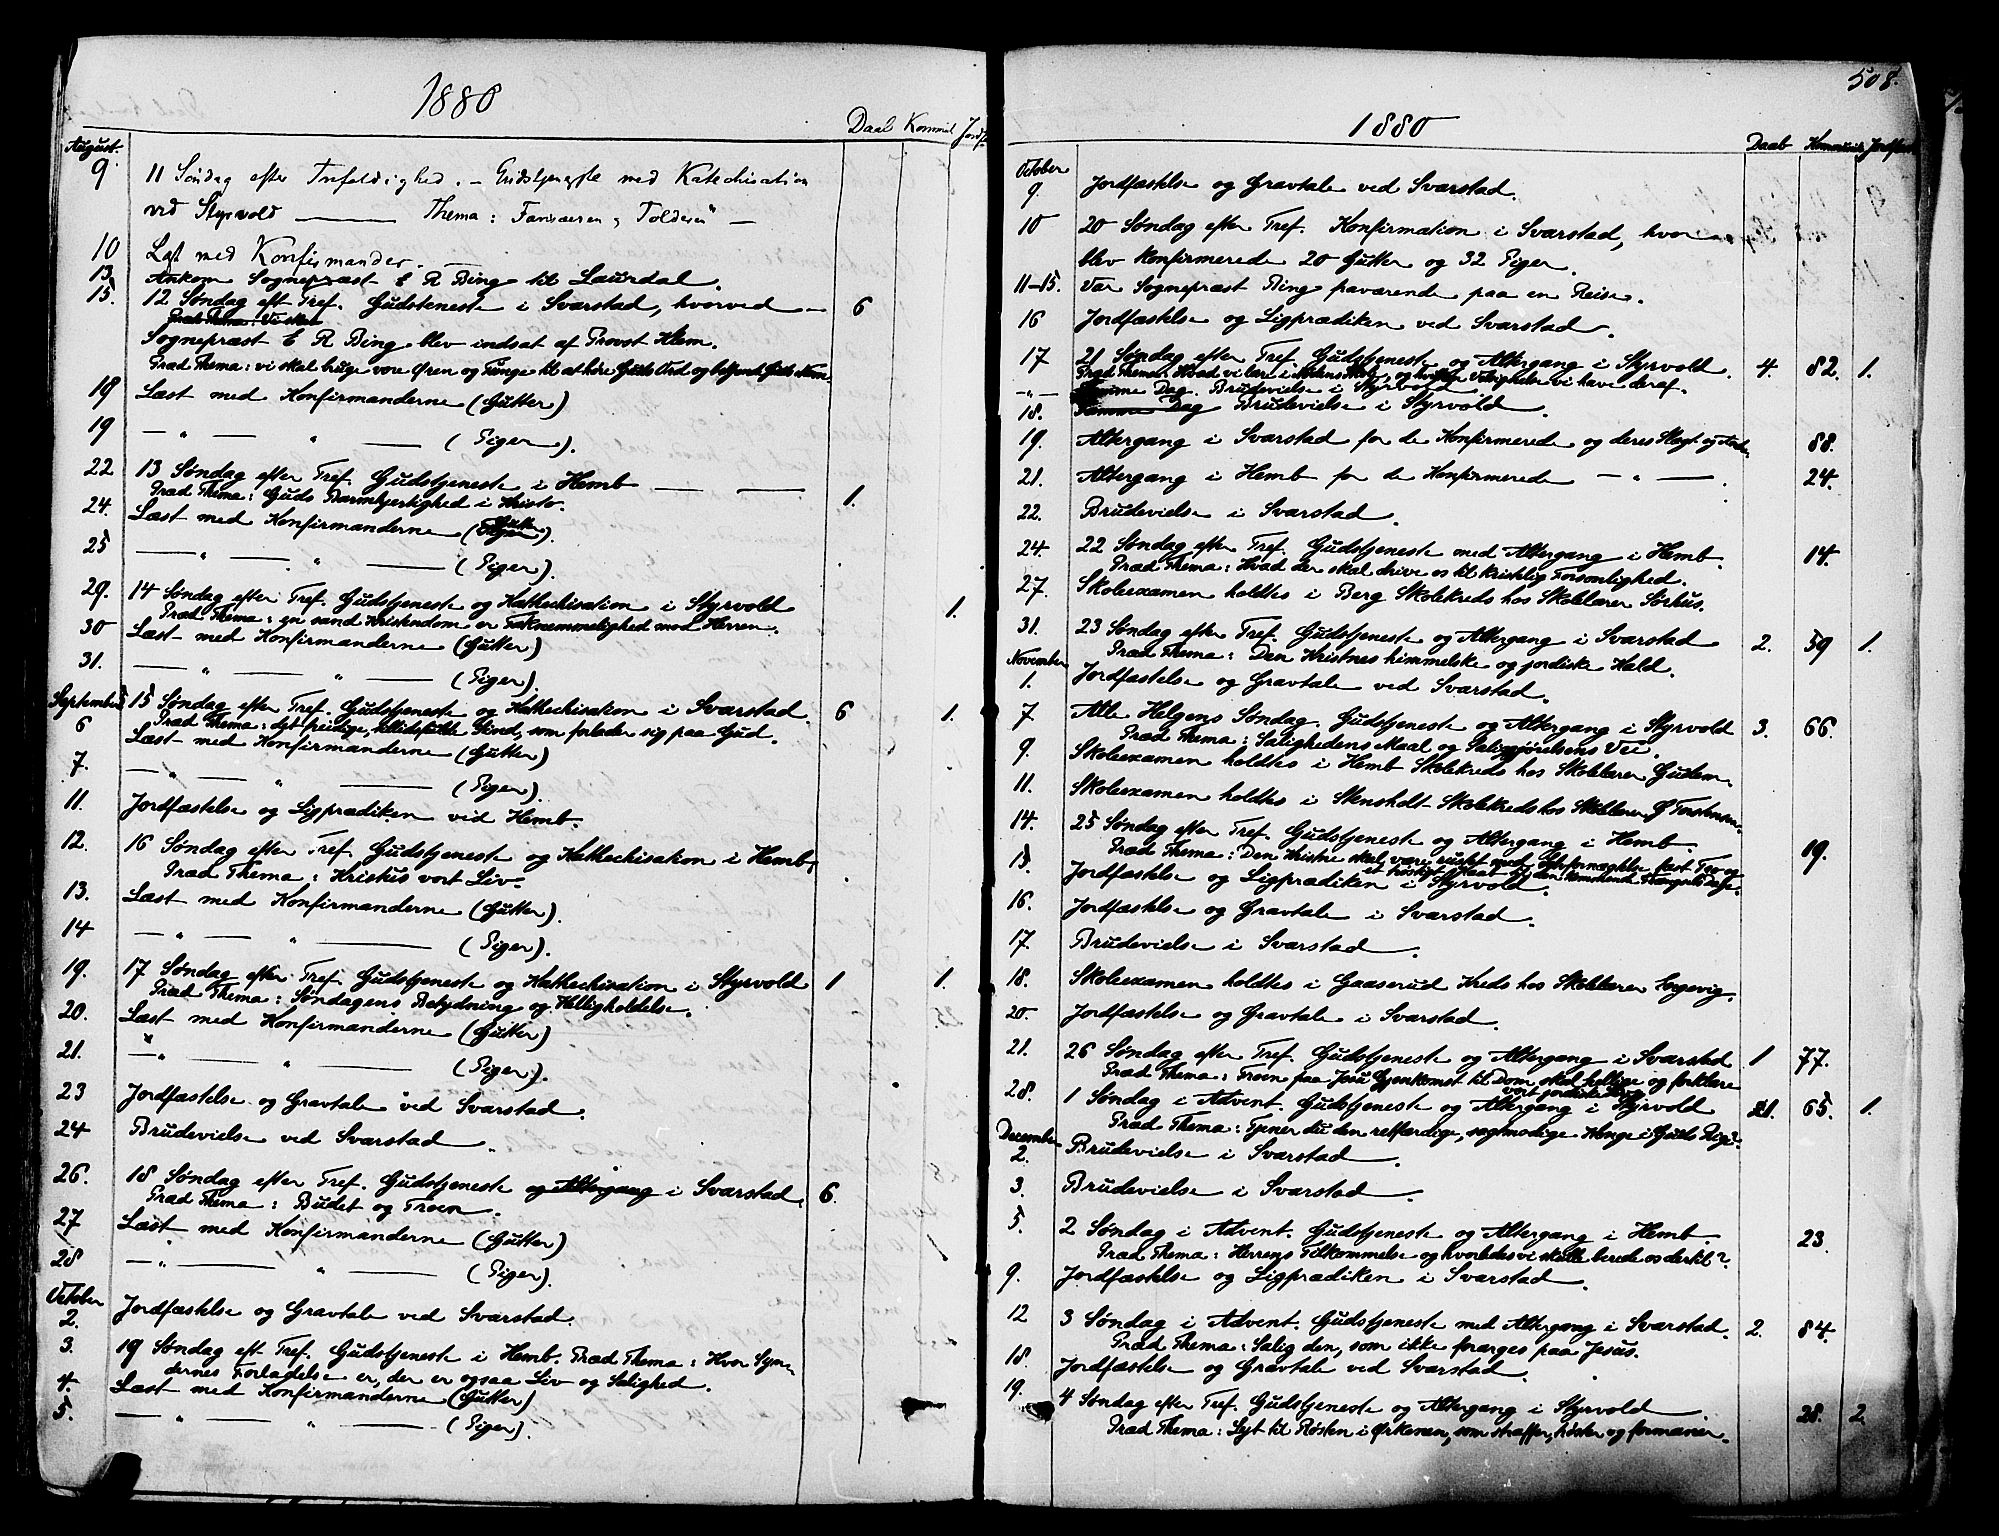 1880
Daab Kommun. Jordf.
August.
9 11 Søndag efter Trefoldighed. – Gudstjeneste med Katechisation
ved Styrvold — Thema: Farisæeren og Tolderen —
10 Læst med Konfirmander.
13. Ankom Sognepræst E R Bing til Laurdal.
15. 12 Søndag eft Tref. Gudsteneste i Svarstad, hvorved — 6
Præd Thema: Vi skal
Sognepræst E R Bing blev indsat af Provst Klem.
Præd Thema: vi skal bruge vore Øren og Tunge til at høre Guds Ord og bekjende Guds Navn.
18 Læst med Konfirmanderne (Gutter)
19 — " — " — (Piger).
22 13 Søndag efter Tref. Gudstjeneste i Hemb — — 1.
Præd Thema: Guds Barmhjertighed i Kristo.
24. Læst med Konfirmanderne (Gutter).
25 — " — " — (Piger).
29. 14 Søndag efter Tref. Gudstjeneste og Kathechisation i Styrvold 1.
Præd Thema: en sand Kristendom er Taknemmelighed mod Herren.
30 Læst med Konfirmanderne (Gutter)
31. — " — " — (Piger).
September 15 Søndag efter Tref. Gudstjeneste og Kathechisation i Svarstad. 6 1.
Præd Thema: det freidige, tillidsfulde Sind, som forlader sig paa Gud.
6 Læst med Konfirmanderne (Gutter)
7. — " — " — (Piger).
11. Jordfæstelse og Ligprædiken ved Hemb.
12. 16 Søndag efter Tref. Gudstjeneste og Kathechisation i Hemb,
Præd Thema: Kristus vort Liv.
13. Læst med Konfirmanderne (Gutter).
14 — " — " — (Piger).
19. 17 Søndag efter Tref. Gudstjeneste og Kathechisation i Styrvold 1 1.
Præd Thema: Søndagens Betydning og Helligholdelse.
20. Læst med Konfirmanderne (Gutter)
21. — " — " — (Piger).
23 Jordfæstelse og Gravtale ved Svarstad.
24 Brudevielse ved Svarstad.
26. 18 Søndag efter Tref. Gudstjeneste og Altergang i Svarstad, 6.
Præd Thema: Budet og Troen.
27 Læst med Konfirmanderne (Gutter)
28 — " — " — (Piger).
October
2. Jordfæstelse og Gravtale ved Svarstad.
3. 19 Søndag eft Tref. Gudstjeneste i Hemb. Præd Thema: Hvor Syn-
dernes Forladelse er, der er ogsaa Liv og Salighed.
4. Læst med Konfirmanderne (Gutter)
5. — " — " — (Piger).
508.
1880
Daab Kommunik. Jordfæst
October
9. Jordfæstelse og Gravtale ved Svarstad.
10 20 Søndag efter Tref. Konfirmation i Svarstad, hvor
blev Konfirmerede 20 Gutter og 32 Piger.
11–15. Var Sognepræst Bing fraværende paa en Reise.
16 Jordfæstelse og Ligprædiken ved Svarstad.
17 21 Søndag efter Tref. Gudstjeneste og Altergang i Styrvold. 4. 82. 1.
Præd Thema: Hvad vi lære i og hvilke Velsignelse vi have deraf.
— " — Samme Dag. Brudevielse i Styrvold.
18. Samme Dag Brudevielse i Styrvold.
19. Altergang i Svarstad for de Konfirmerede og deres Slegt og Andre 88.
21. Altergang i Hemb for de Konfirmerede — " —. 24.
22. Brudevielse i Svarstad.
24. 22 Søndag efter Tref. Gudstjeneste med Altergang i Hemb. 14.
Præd Thema: Hvad der skal drive os til kristelig Forsonlighed.
27. Skoleexamen holdtes i Berg Skolekreds hos Skolelærer Sørhus.
31. 23 Søndag efter Tref. Gudstjeneste og Altergang i Svarstad 2. 59 1.
Præd Thema: Den Kristnes himmelske og jordiske Kald.
November
1. Jordfæstelse og Gravtale ved Svarstad.
7 Alle Helgens Søndag. Gudstjeneste og Altergang i Styrvold 3. 66.
Præd Thema: Salighedens Maal og Saliggjørelsens Vei.
9. Skoleexamen holdtes i Hemb Skolekreds hos Skolelærer Gutem.
11. Skoleexamen holdtes i Stensholt Skolekreds hos Skolelærer
14. 25 Søndag efter Tref. Gudstjeneste og Altergang i Hemb. 19.
Præd Thema: Den Kristne skal være rustet med Selvfornægtelse, fast Tro og
et trøstigt Haab til den kommende Trængsels Dage.
15. Jordfæstelse og Ligprædiken i Styrvold.
16. Jordfæstelse og Gravtale i Svarstad.
17 Brudevielse i Svarstad.
18. Skoleexamen holdtes i Gaaserud Kreds hos Skolelærer Engevig.
20. Jordfæstelse og Gravtale i Svarstad.
21. 26 Søndag efter Tref. Gudstjeneste og Altergang i Svarstad 1 77.
Præd Thema: Troen paa Jesu Gjenkomst til Dom skal hellige og forklare
vort jordiske Liv.
28. 1 Søndag i Advent. Gudstjeneste og Altergang i Styrvold 1. 65. 1.
Præd Thema: Tjener du den retfærdige, sagtmodige Konge i Guds Rige?
December
2. Brudevielse i Svarstad.
3. Brudevielse i Svarstad.
5. 2 Søndag i Advent. Gudstjeneste og Altergang i Hemb. 23.
Præd Thema: Herrens Tilkommelse og hvorledes vi skulle berede os dertil?
9. Jordfæstelse og Ligprædiken i Svarstad.
12 3 Søndag i Advent. Gudstjeneste med Altergang i Svarstad. 2. 84.
Præd Thema: Salig den, som ikke forarges paa Jesus.
18. Jordfæstelse og Gravtale ved Svarstad.
19. 4 Søndag efter Tref. Gudstjeneste og Altergang i Styrvold. 28. 2.
Præd Thema: Lyt til Røsten i Ørkenen, som straffer, trøster og formaner.